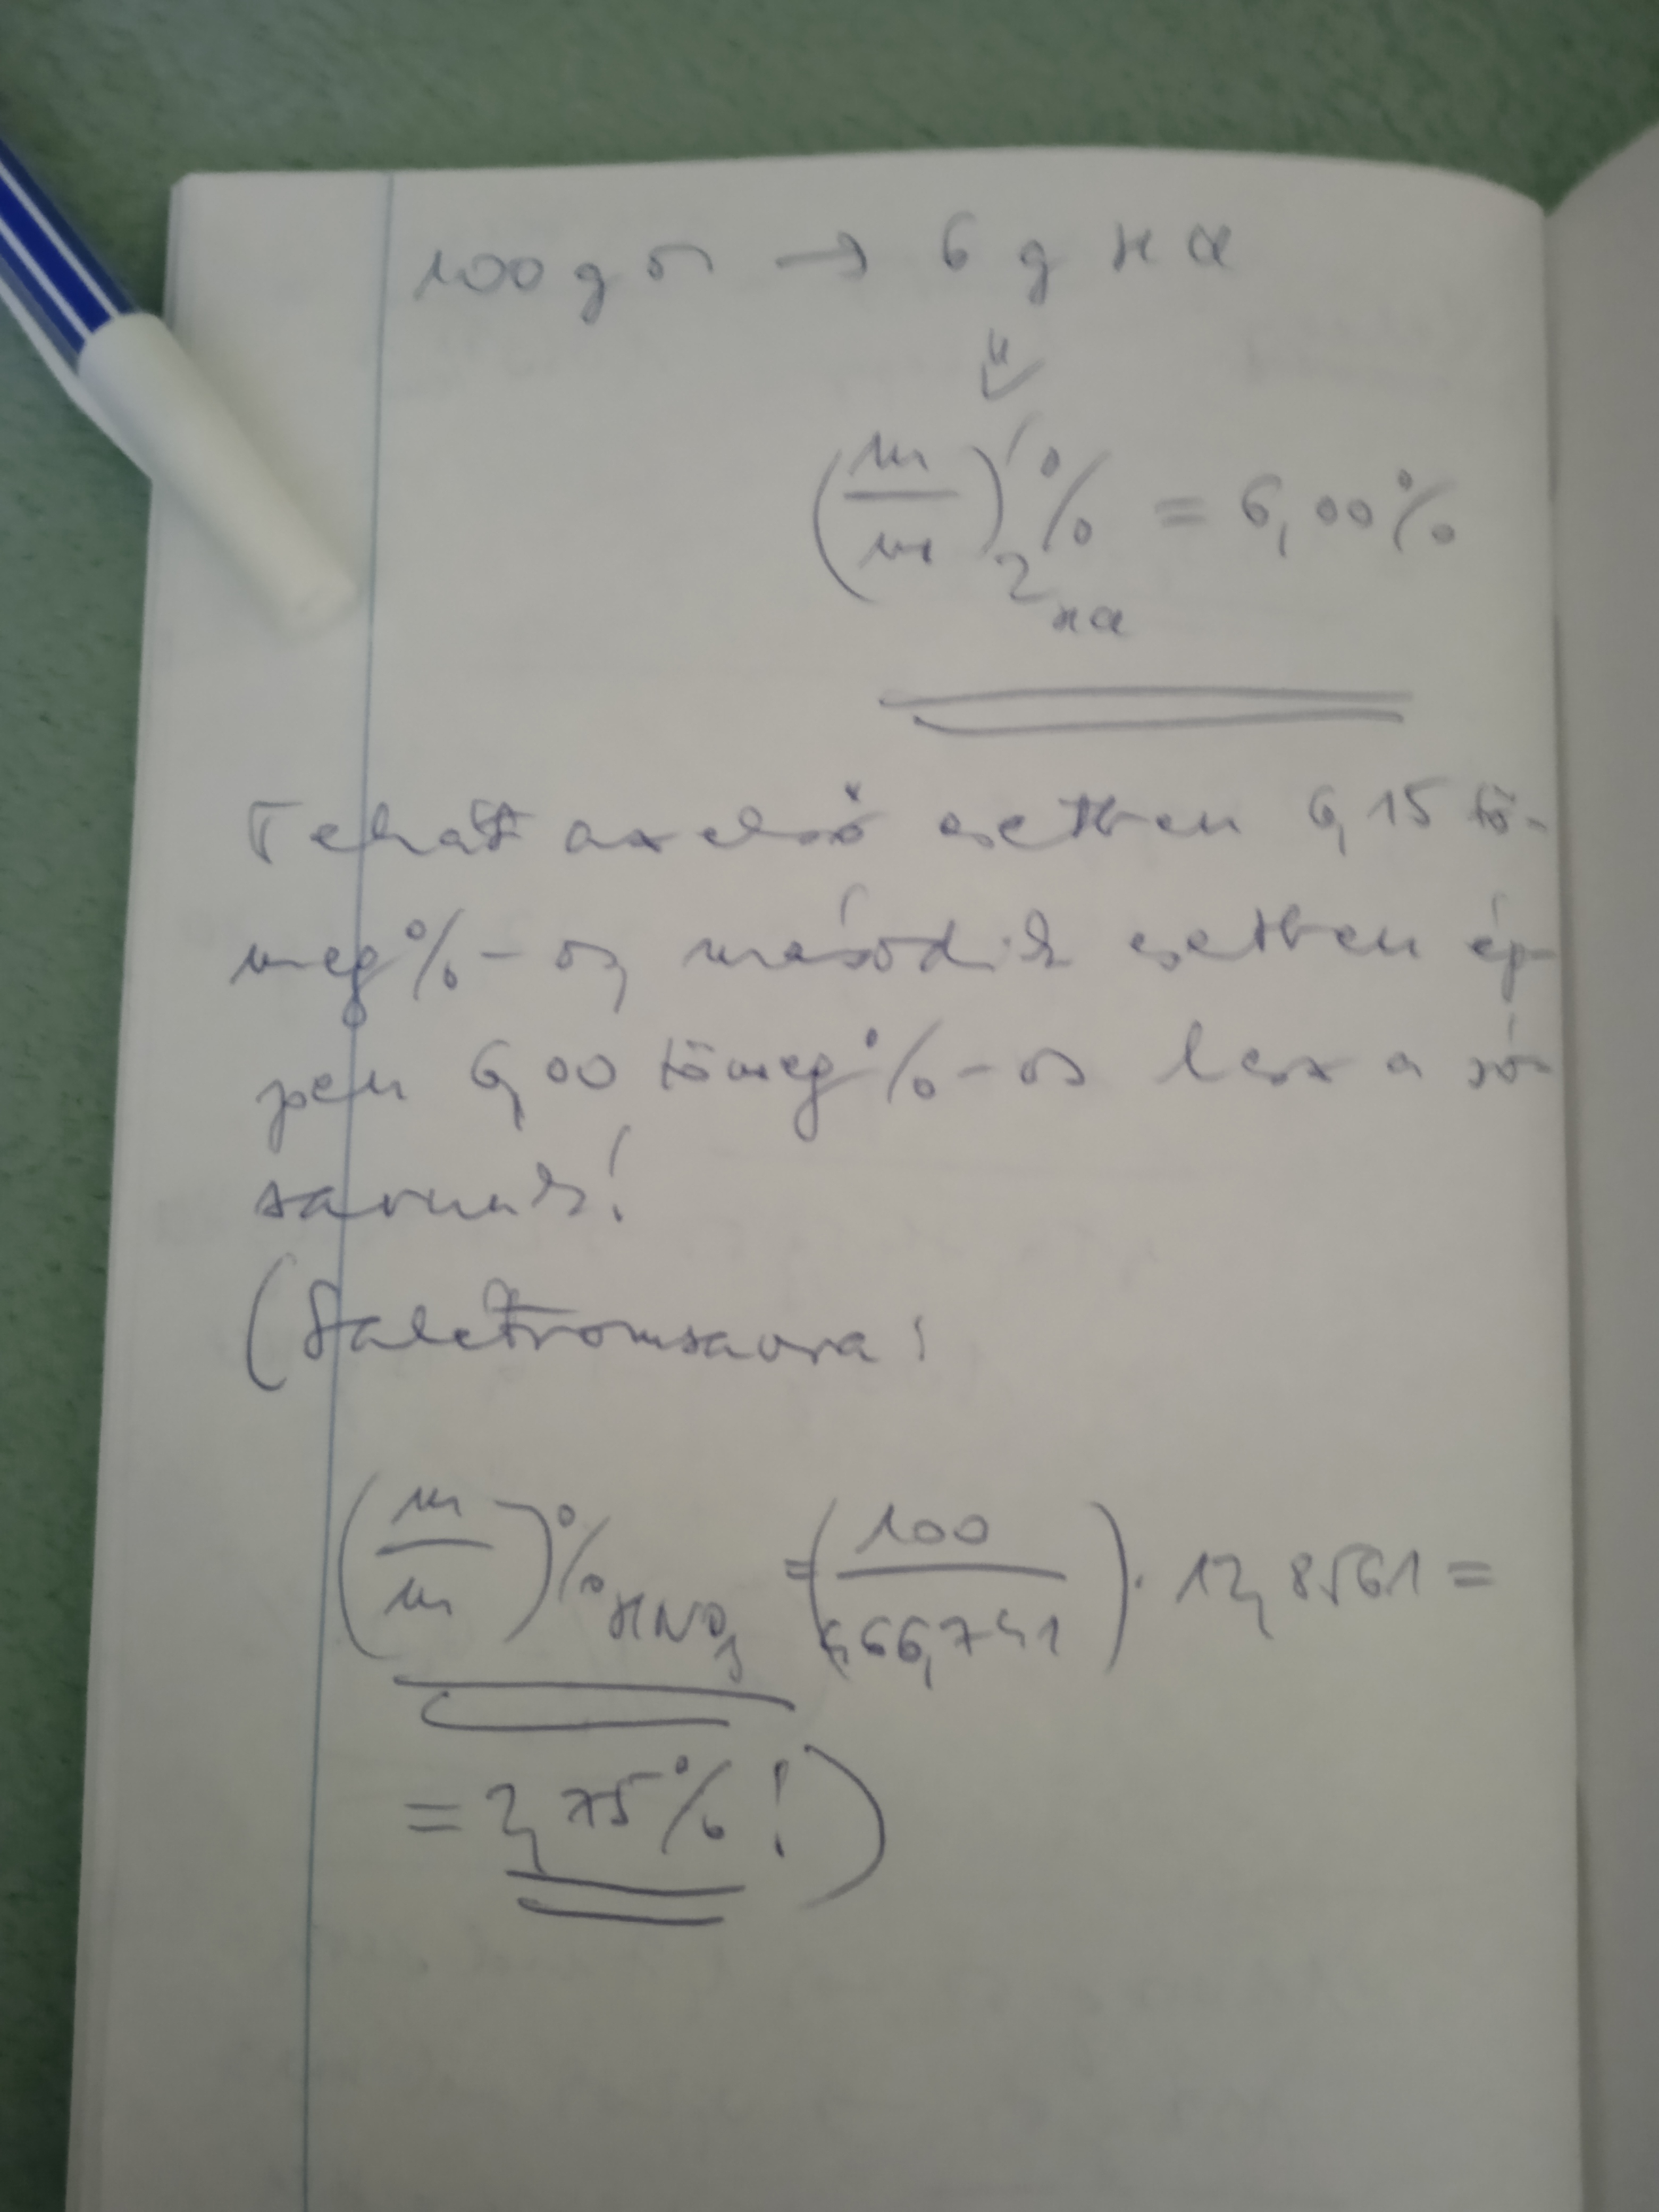 100 g o → 6 g HCl
(m/m)₂% HCl = 6,00%
Tehát az első esetben 6,15 tö-
meg%-os, második esetben ép-
pen 6,00 tömeg%-os lesz a só-
savunk!
(Salétromsavra:
(m/m)% HNO₃ = (100/466,741) · 12,8561 =
= 2,75%!)